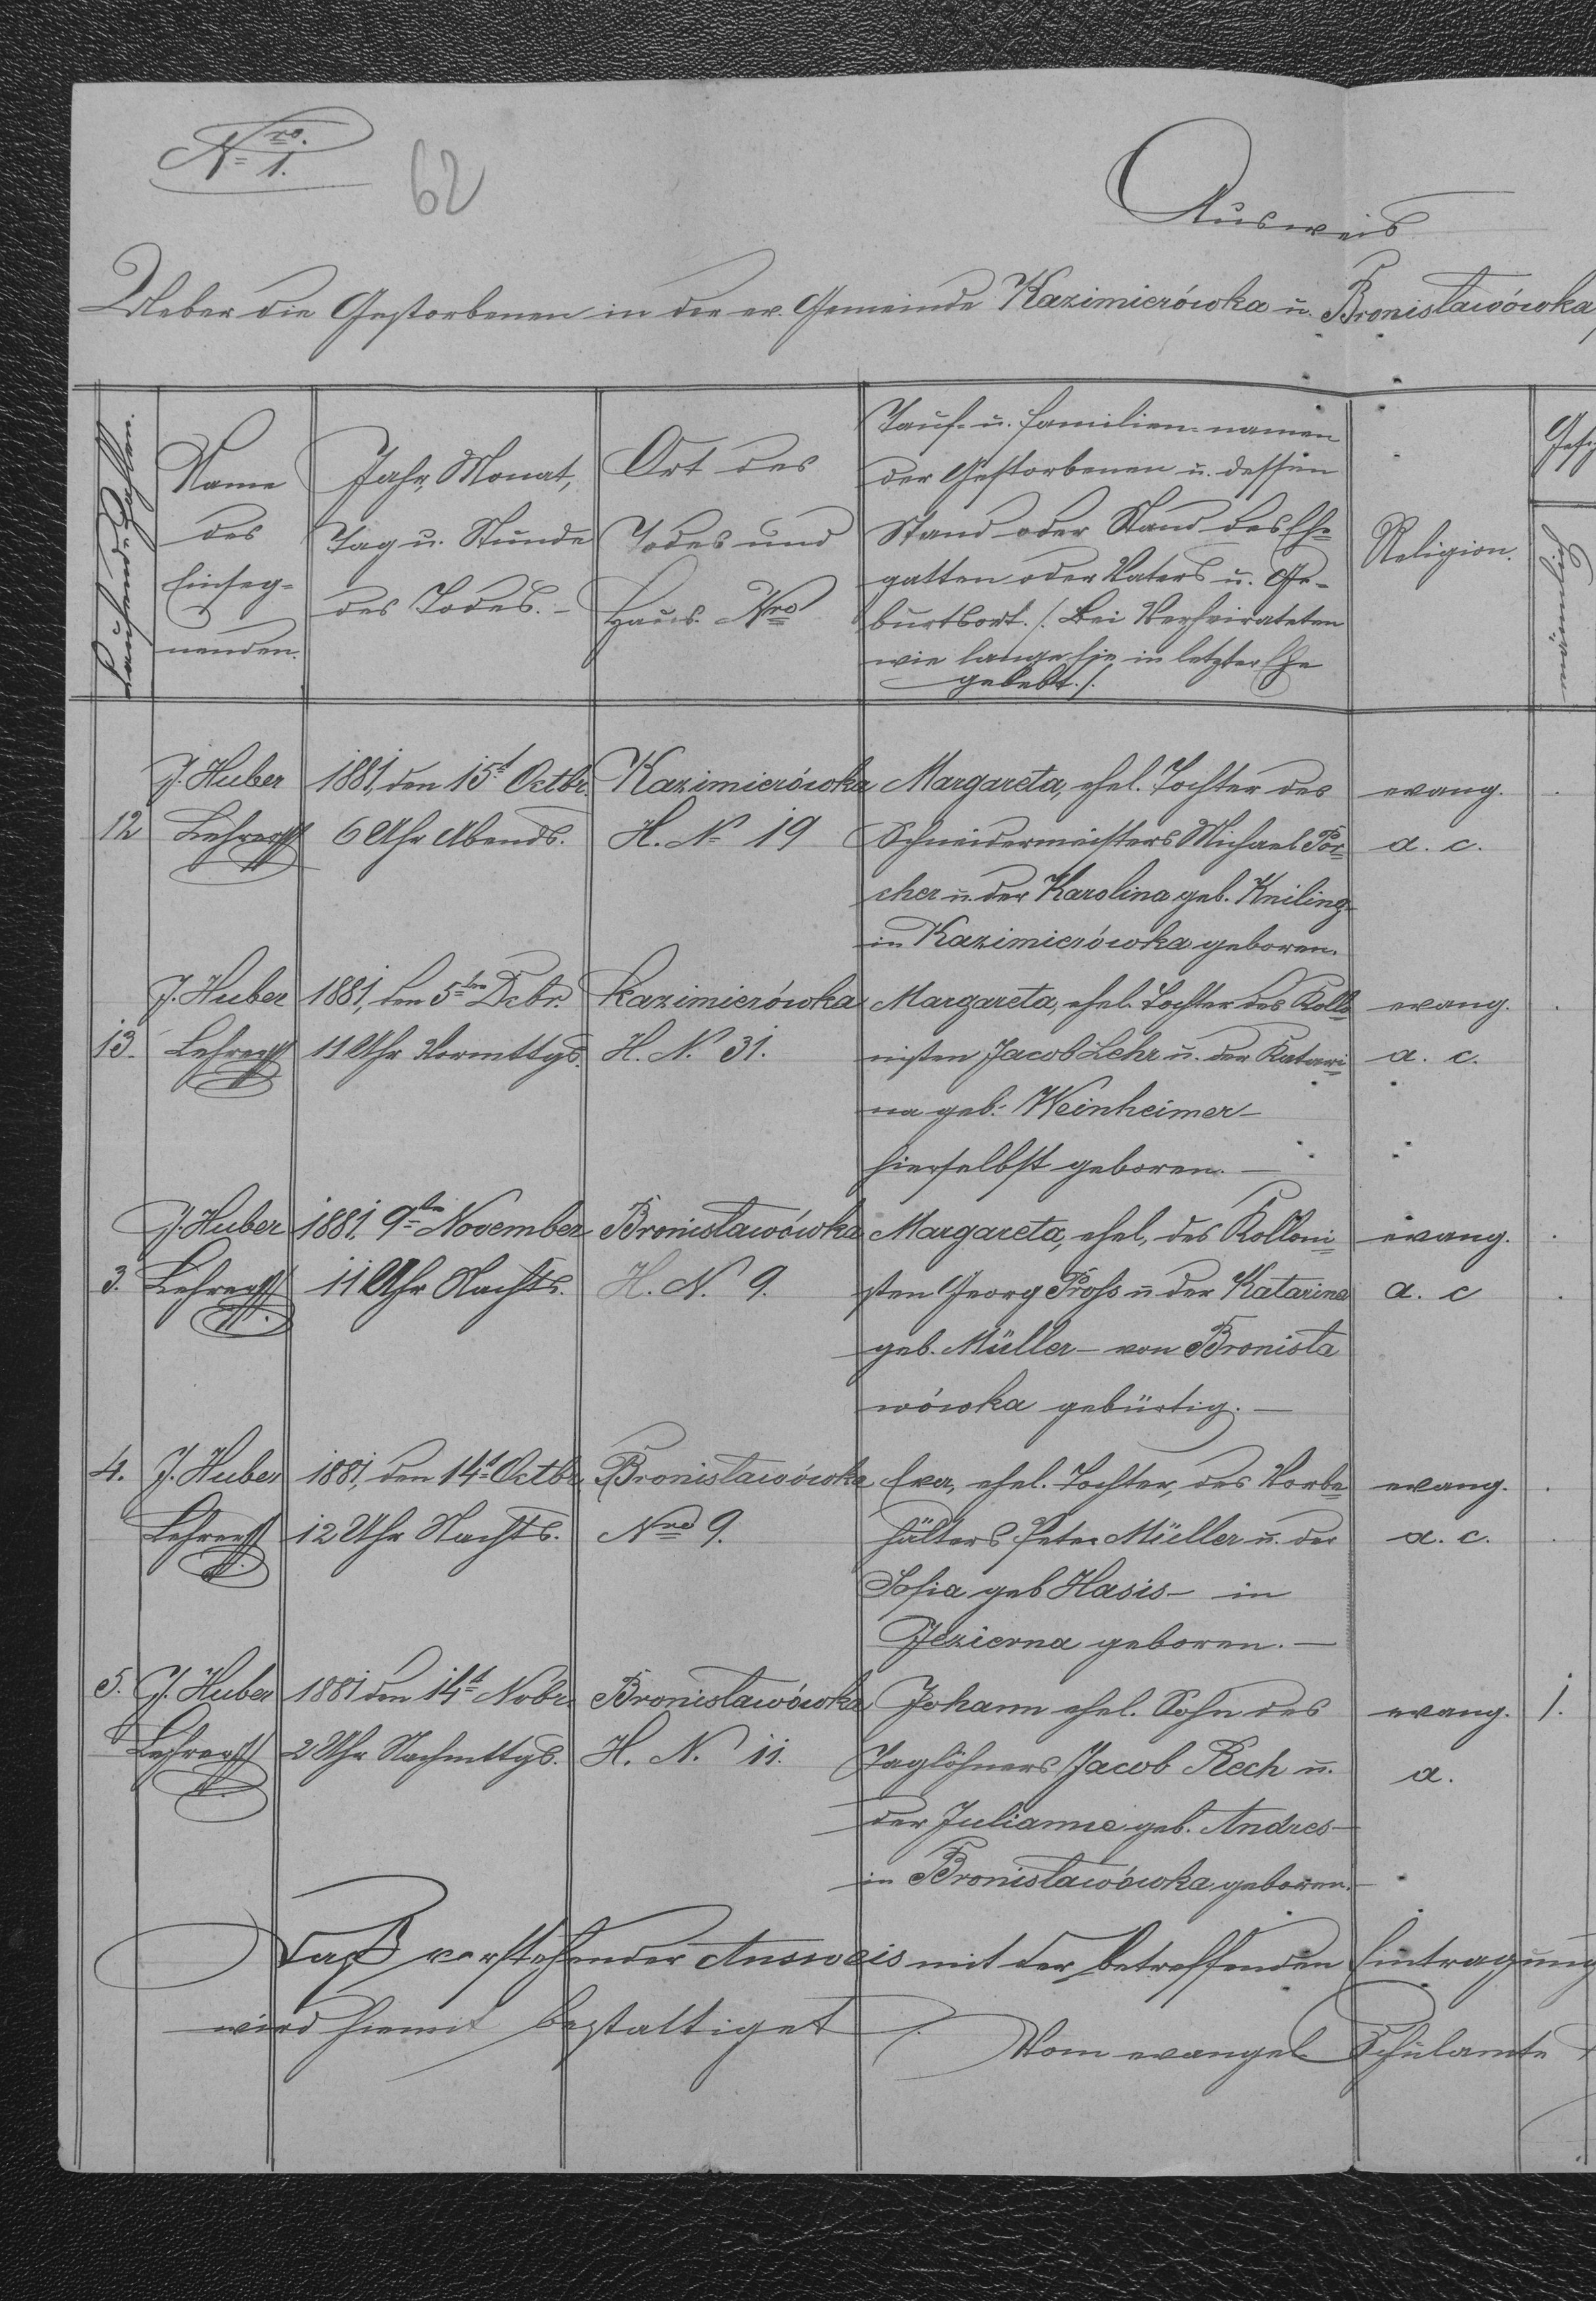 Nro. 1.
62
Ausweis
Ueber die Gestorbenen in der ev. Gemeinde Kazimierówka u. Bronisławówka
Laufende Zahlen.
Name
des
Einseg-
nenden.
Jahr, Monat,
Tag u. Stunde
des Todes. –
Ort des
Todes und
Haus. Nro
Tauf- u. Familien-namen
der Gestorbenen u. dessen
Stand oder Stand des Eh-
gatten oder Vaters u. Ge-
burtsort. /. Bei Verheirateten
wie lange sie in letzter Ehe
gelebt. /.
Religion.
männlich
J. Huber 1881, den 15t Octbr. Kazimierówka Margareta, ehel. Tochter des evang.
12 Lehrer 6 Uhr Abends. H. N. 19 Schneidermeisters Michael Por- a. c.
cher u. der Karolina geb. Kniling-
in Kazimierówka geboren.
J. Huber 1881, den 5ten Dcbr. Kazimierówka Margareta, ehel. Tochter des Kollo- evang.
13. Lehrer 11 Uhr Vormttgs. H. N. 31. nisten Jacob Lehr u. der Katari- a. c.
na geb. Weinheimer –
hierselbst geboren. –
J. Huber 1881. 9ten November Bronisławówka Margareta, ehel, des Kolloni- evang.
3. Lehrer 11 Uhr Nachts. H. N. 9. sten Georg Pross u der Katarina a. c
geb. Müller – von Bronisła
wówka gebürtig. –
4. J. Huber 1881, den 14t Octbr. Bronisławówka Eva, ehel. Tochter, des Vorbe- evang.
Lehrer 12 Uhr Nachts. Nro 9. hälters Peter Müller u. der a. c.
Sofia geb Hasis – in
Jezierna geboren. –
5. J. Huber 1881 den 14t Nobr. Bronisławówka Johann ehel. Sohn des evang. 1.
Lehrer 2 Uhr Nachmttgs. H. N. 11. Taglöhners Jacob Rech u. a.
der Julianne geb. Andres –
in Bronisławówka geboren. –
Daß vorstehender Ausweis mit der betreffenden Eintragung
wird hiemit bestattiget
Vom evangel. Schulamte